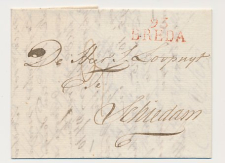 93
BREDA
De Heer J. Loopuyt
Te
Schiedam